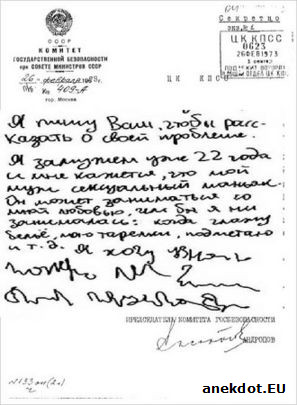 СССР
КОМИТЕТ
ГОСУДАРСТВЕННОЙ БЕЗОПАСНОСТИ
при СОВЕТЕ МИНИСТРОВ СССР
26 февраля
№ 409-А
гор. Москва
Секретно
ЦК КПСС
0623
26 ФЕВ 1973
ЦК КПСС
Я пишу Вам, чтобы рас-
сказать о своей проблеме.
Я замужем уже 22 года
и мне кажется, что мой
муж сексуальный маньяк.
Он может заниматься со
мной любовью, чем бы я ни
занималась: когда глажу
бельё, мою тарелки, подметаю
и т.д. Я хочу
ПРЕДСЕДАТЕЛЬ КОМИТЕТА ГОСБЕЗОПАСНОСТИ
АНДРОПОВ
anekdot.EU